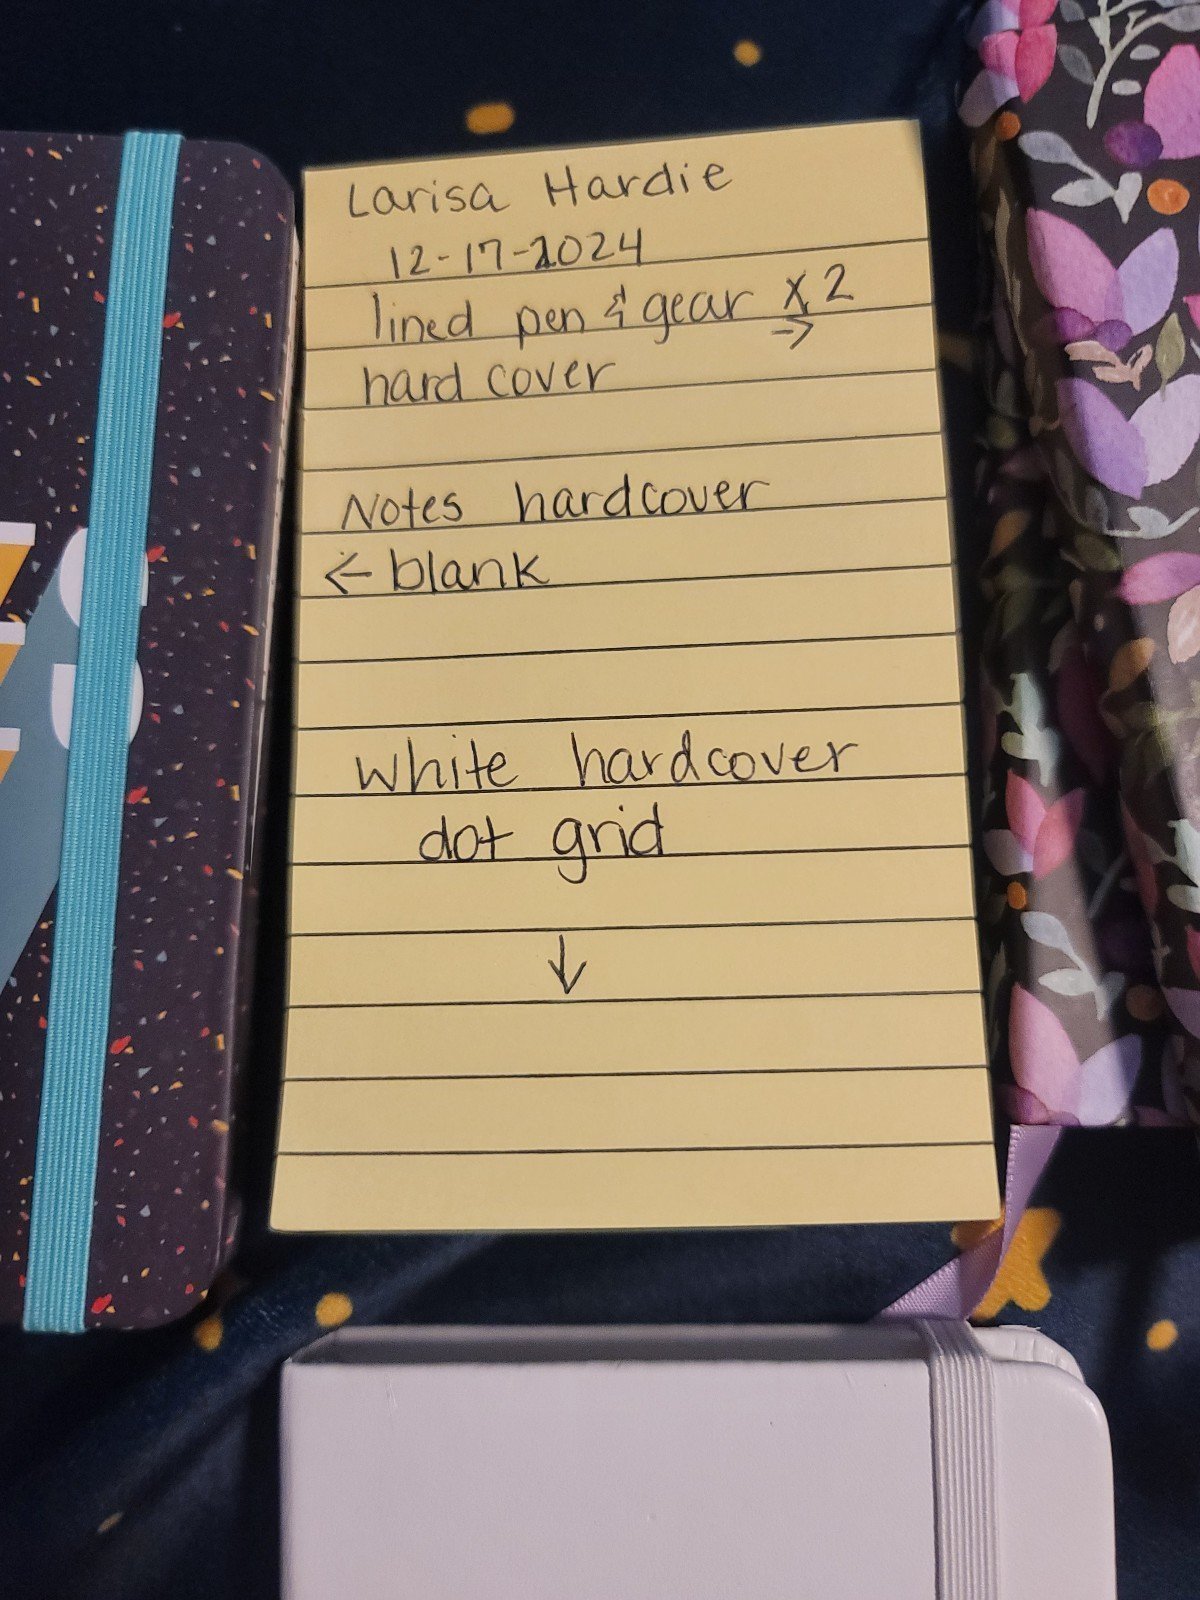 Larisa Hardie
12-17-2024
lined pen & gear x2
→
hard cover
Notes hardcover
← blank
White hardcover
dot grid
↓